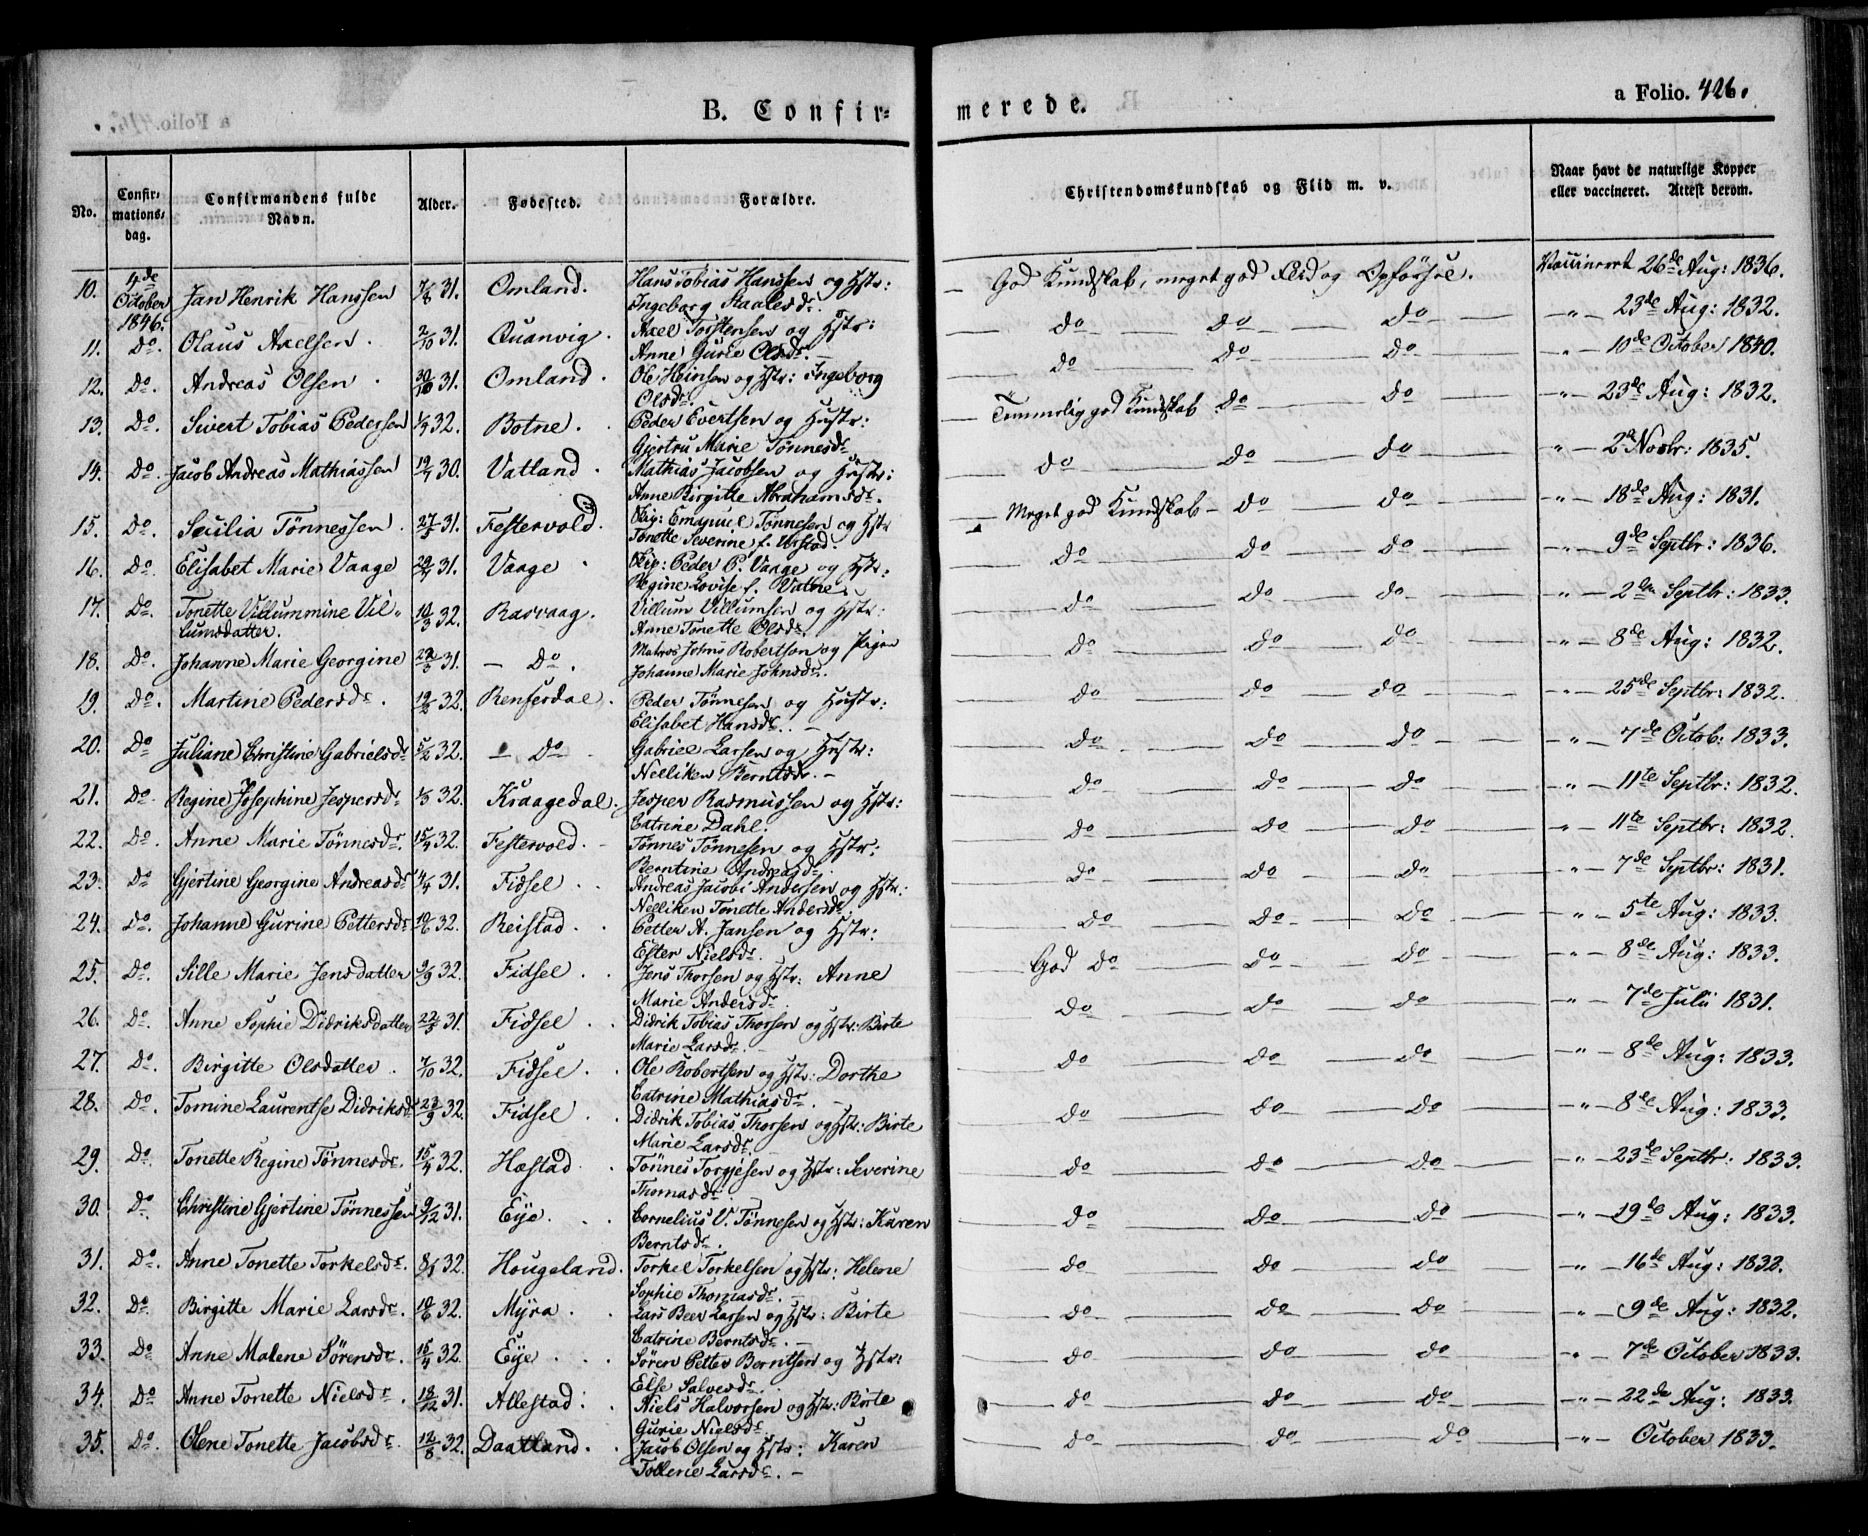 B. Confirmerede.
a Folio. 426.
No. Confirmationsdag. Confirmandens fulde Navn. Alder. Fødested. Forældre. Christendomskundskab og Flid m. v. Naar havt de naturlige Kopper eller vaccineret. Attest derom.
10. 4de October 1846. Jan Henrik Hanssen 7/8 31. Omland. Hans Tobias Hanssen og Hstr: Ingeborg Staalesdr. — God Kundskab, meget god Flid og Opførsel. Vaccineret 26de Aug: 1836.
11. Do. Olaus Axelsen. 2/10 31. Quanvig. Axel Torstensen og Hstr: Anne Gurie Olsdr. — do — do — do — " — 23de Aug: 1832.
12. Do. Andreas Olsen. 30/10 31. Omland. Ole Heinsen og Hstr: Ingeborg Olsdr. do — do — do — " — 10de October 1840.
13. Do. Sivert Tobias Pedersen 1/4 32. Botne. Peder Evertsen og Hustr: Gjertru Marie Tønnesdr — Temmelig god Kundskab do — do — " — 23de Aug: 1832.
14. Do. Jacob Andreas Mathiassen 19/7 30. Vatland. Mathias Jacobsen og Hustr: Anne Birgitte Abrahamsdr. do — do — do " — 2de Novbr: 1835.
15. Do. Secilia Tønnessen. 27/5 31. Festervold. Skip: Emanuel Tønnesen og Hstr Tonette Severine f. Urstad. — Meget god Kundskab — do — do — " — 18de Aug: 1831.
16. Do. Elisabet Marie Vaage 29/7 31. Vaage. Skip: Peder P. Vaage og Hstr: Regine Lovise f. Vatne. do — do — do — " — 9de Septbr: 1836.
17. Do. Tonette Villummine Villumsdatter. 14/3 32. Rasvaag. Villum Villumsen og Hstr: Anne Tonette Olsdr. do — do — do — " — 2den Septbr: 1833.
18. Do. Johanne Marie Georgine 22/3 31. — Do. Matros Johns Robertson og Pigen Johanne Marie Johnsdr. do — do — do — " — 8de Aug: 1832.
19. Do. Martine Pedersdr. 19/2 32. Rensferdal. Peder Tønnesen og Hustr: Elisabet Hansdr. — do — do — do — " — 25de Septbr: 1832.
20. Do Juliane Christine Gabrielsdr 5/2 32. — Do — Gabriel Larsen og Hustr: Nelliken Berntsdr. — do — do — do — " — 7de Octob: 1833.
21. Do. Regine Josephine Jespersdr 1/3 32. Kraagedal. Jesper Rasmussen og Hstr: Catrine Dahl. do — do — do — " — 11te Septbr: 1832.
22. Do. Anne Marie Tønnesdr. 15/4 32. Festervold. — Tønnes Tønnesen og Hstr: Berntine Andreasdr. do — do — do — " — 11te Septbr: 1832.
23. Do Gjertine Georgine Andreasdr 4/4 31. Fidsel. Andreas Jacobi Andersen og Hstr: Nelliken Tonette Andersdr do — do — do — " — 7de Septbr: 1831.
24. Do. Johanne Gurine Pettersdr 19/6 32. Reistad. Petter A. Jansen og Hstr: Ester Nielsdr. do — do — do — " — 5te Aug: 1833.
25. Do. Sille Marie Jensdatter 9/9 32. Fidsel. Jens Thorsen og Hstr: Anne Marie Andersdr. — God do — do — do — " — 8de Aug: 1833.
26. Do. Anne Sophie Didriksdatter 22/5 31. Fidsel. Didrik Tobias Thorsen og Hstr: Birte Marie Larsdr. do — do — do — " — 7de Julii 1831.
27. Do. Birgitte Olsdatter. 7/10 32. Fidsel. Ole Robertsen og Hstr: Dorthe Catrine Mathiasdr. — do — do — do — " — 8de Aug: 1833.
28. Do. Tomine Laurentse Didriksdr 23/9 32. Fidsel. Didrik Tobias Thorsen og Hstr: Birte Marie Larsdr. do — do — do — " — 8de Aug: 1833.
29. Do. Tonette Regine Tønnesdr. 15/4 32. Hæstad. Tønnes Torgjesen og Hstr: Severine Thomasdr. do — do — do — " — 23de Septbr: 1833.
30. Do. Christine Gjertine Tønnessen 9/12 31. Eye. Cornelius V. Tønnesen og Hstr: Karen Berntsdr. — do — do — do — " — 19de Aug: 1833.
31. Do. Anne Tonette Torkelsdr. 8/1 32. Hougeland. Torkel Torkelsen og Hstr: Helene Sophie Thomasdr. — do — do — do — " — 16de Aug: 1832.
32. Do Birgitte Marie Larsdr. 10/6 32. Myra. Lars Beer Larsen og Hstr: Birte Catrine Berntsdr. — do — do — do — " — 9de Aug: 1832.
33. Do. Anne Malene Sørensdr. 15/4 32. Eye. Søren Petter Berntsen og Hstr: Else Salvesdr. do — do — do — " — 7de October 1833.
34. Do Anne Tonette Nielsdr. 13/12 31. Allestad. Niels Halvorsen og Hstr: Birte Gurie Nielsdr. do — do — do — " — 22de Aug: 1833.
35. Do. Olene Tonette Jacobsdr. 12/8 32. Daatland. Jacob Olsen og Hstr: Karen Tollene Larsdr. — do — do — do " — October 1833.